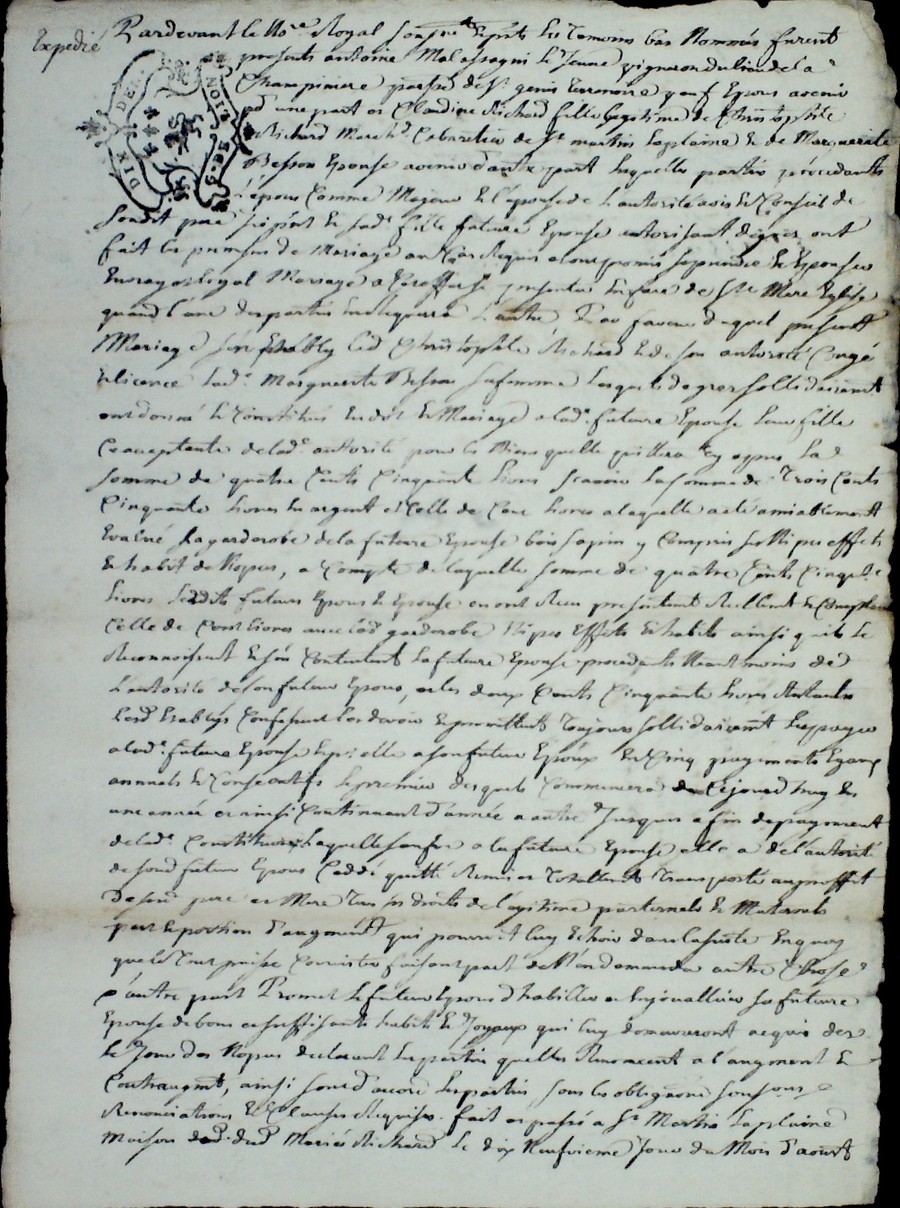 Expedié
Pardevant le No.re Royal soussigné Et pnts Les Temoins bas Nommés furent
presents antoine Malassagni le Jeune vigneron du lieu de la
Champinere parroisse de St. genis terrenoire y auf Epoux avenir
d'une part et Claudine Richard fille legitime de Christophle
Richard March.d Cabaretier de St martin laplaine & de Marguerite
Besson Epouse avenir d'autre part lesquelles parties procedants
l'epoux Comme Majeur & l'epouse de l'autorité avis & Conseil de
sondit pere icy pnt & lad.e fille future Epouse autorisant de grez ont
fait les promesses de Mariage au Cas Requis et ont promis se prendre & Epouser
En vray et loyal Mariage a Ce effet se presenter En face de Ste Mere Eglise
quand l'une des parties En Requerra l'autre En faveur duquel present
Mariage sont Etably led Christophle Richard & de son autorité Congé
& licence lad.e Marguerite Besson sa femme lesquels de grez sollidairement
ont donné & Constitué En dot & Mariage a lad.e future Epouse leur fille
Ce acceptante de lad.e autorité pour les biens quelle quittera cy apres la
somme de quatre Cents Cinquante livres scavoir la somme de Trois Cents
Cinquante livres En argent et Celle de Cent livres a laquelle a eté amiablement
Evalué la garderobe de la future Epouse bois sapin y Compris ses Nipes effets
& habit de Nopces, a Compte de laquelle somme de quatre Cents Cinq.te
livres lesdits futurs Epoux & Epouse en ont Reçu presentement Reellement & Comptant
Celle de Cent livres avec lad garderobe Nipes Effets & habits ainsi qu'ils le
Reconnoissent & s'en Contentent la future Epouse procedante Neantmoins de
l'autorité de son futur Epoux, et les deux Cents Cinquante livres Restantes
lesd Etablys Confessent les devoir & promettent Toujours sollidairement les payer
a lad.e future Epouse & p.r elle a son futur Epoux En Cinq payements Egaux
annuels & Consecutifs le premier desquels Commencera de Cejourd'huy En
une année et ainsi Continuant d'année a autre Jusques a fin de payement
de lad.e Constitution laquelle faite a la future Epouse elle a de l'autorité
de sond futur Epoux Cedé quitté Remis et Totallement Transporté au proffit
De sesd pere et Mere Tous ses droits de legitime paternels & Maternels
part & portion d'augment qui pourroit luy Echoir dans la suite En quoy
que le Tout puisse Consister faisant part de N'en demander autre Chose
D'autre part Promet le futur Epoux d'habiller et Enjoualler sa future
Epouse de bons et suffisants habits & Joyaux qui luy demeureront acquis des
le Jour des Nopces declarant les parties quelles Renoncent a l'augment &
Contraugmt, ainsi sont d'accord les parties sous les obligations soumissions
Renonciations & Clauses Requises. fait et passé a St. Martin Laplaine
Maison dud. Mariés Richard le dix Neufvieme Jour du Mois d'aoust